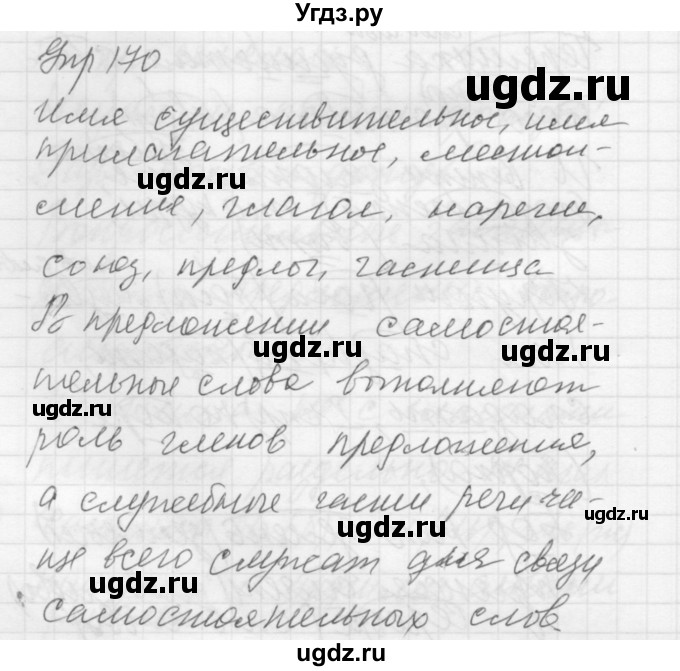 Угдз.ру
Упр 170
Имя существительное, имя
прилагательное, местои-
мение, глагол, наречие,
союз, предлог, частица
В предложении самостоя-
тельные слова выполняют
роль членов предложения,
а служебные части речи ча-
ще всего служат для связи
самостоятельных слов.
ugdz.ru
ugdz.ru
ugdz.ru
ugdz.ru
ugdz.ru
ugdz.ru
ugdz.ru
ugdz.ru
ugdz.ru
ugdz.ru